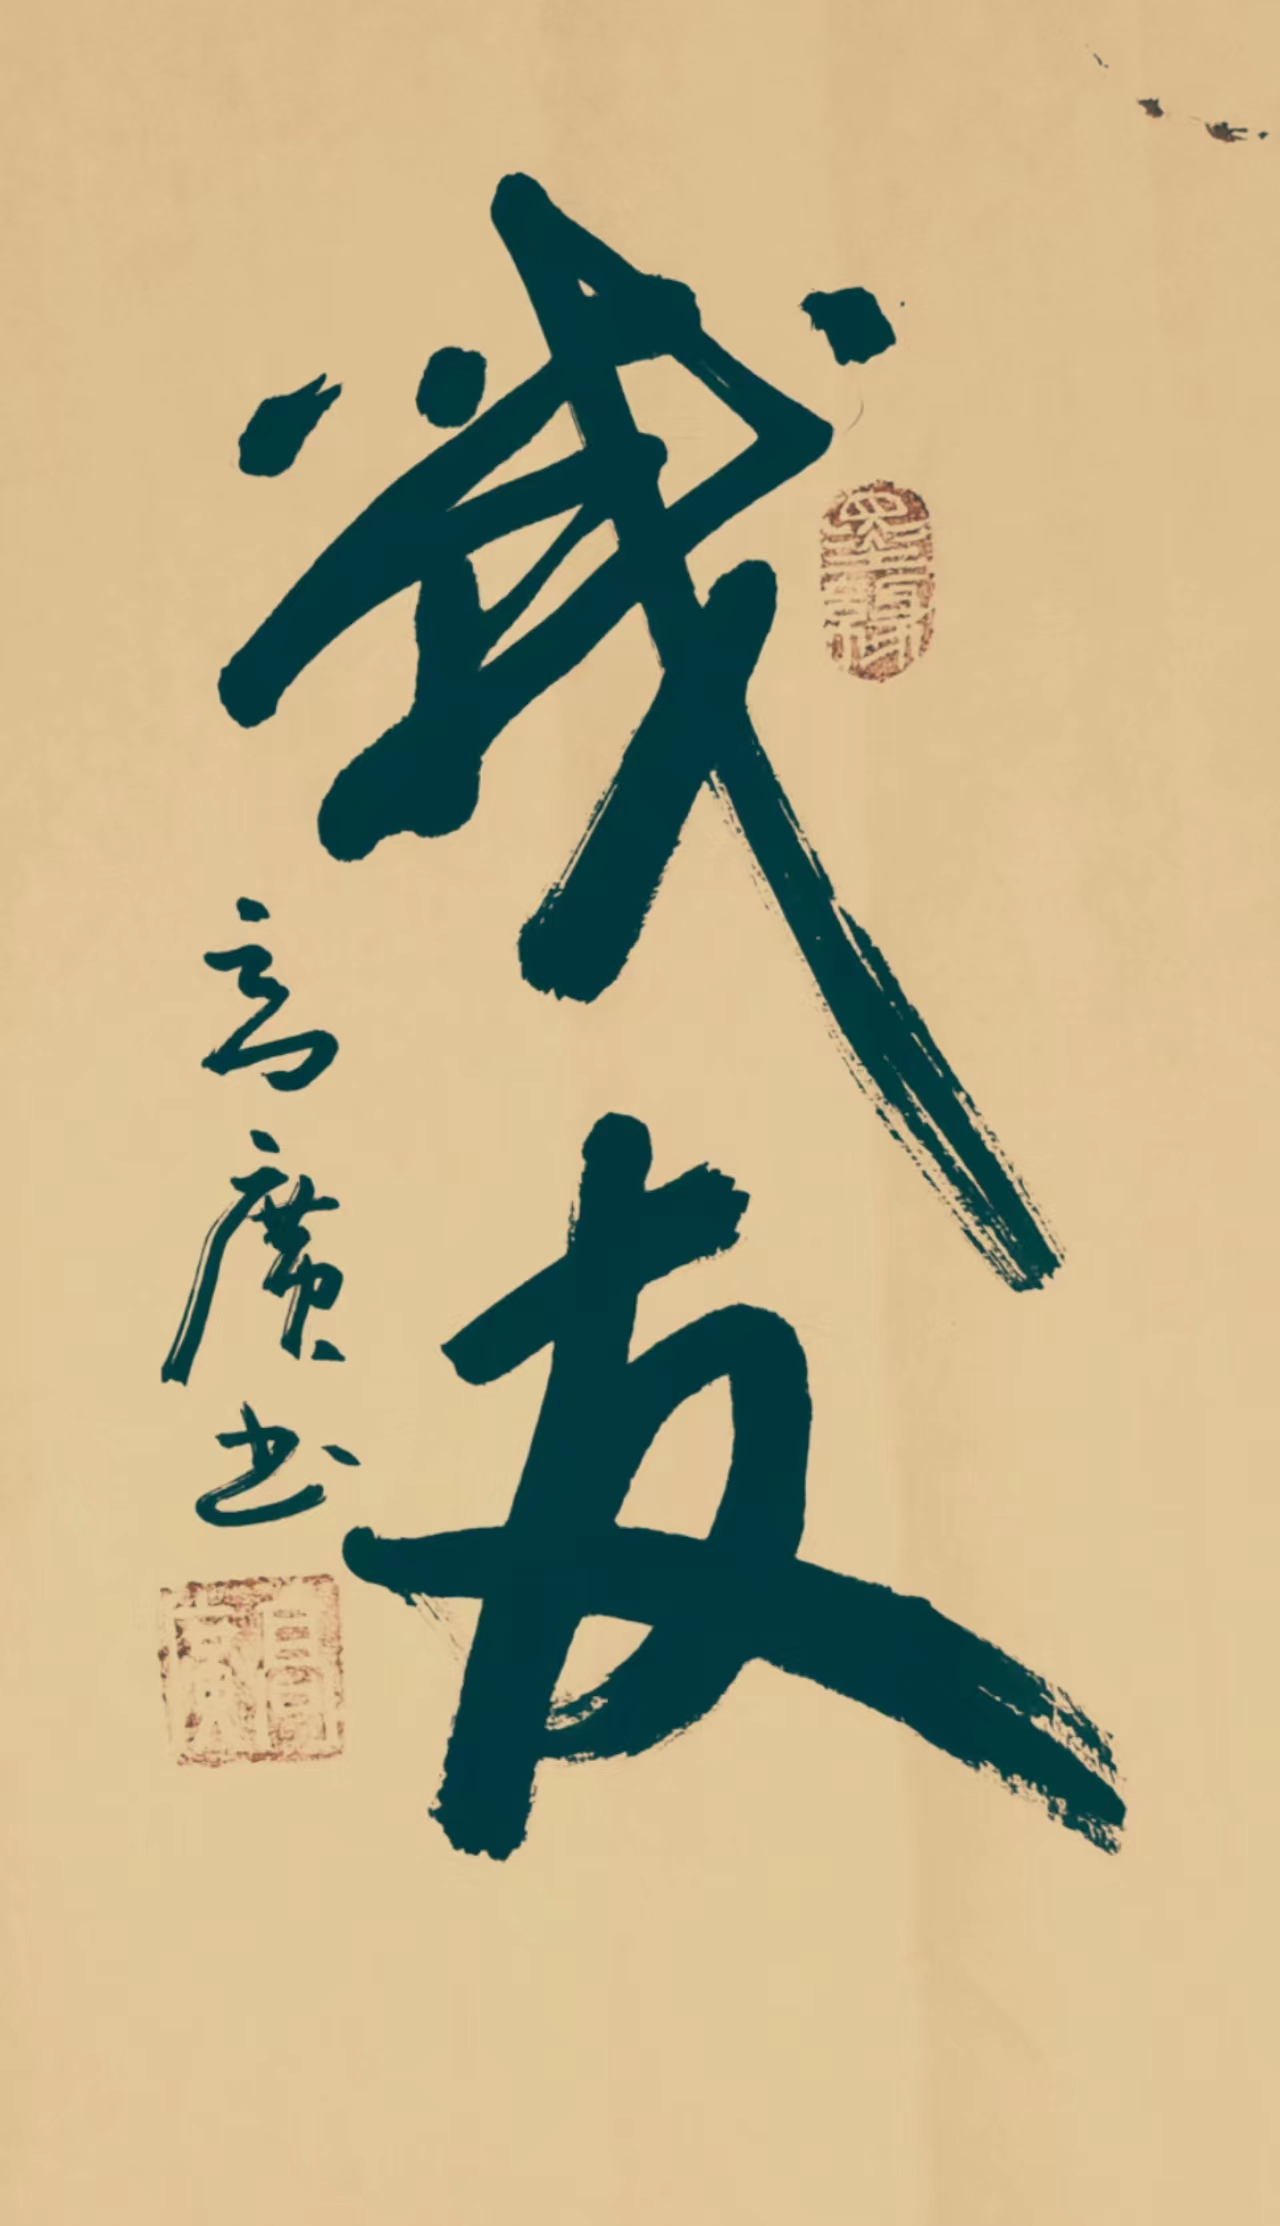 战友
高广书